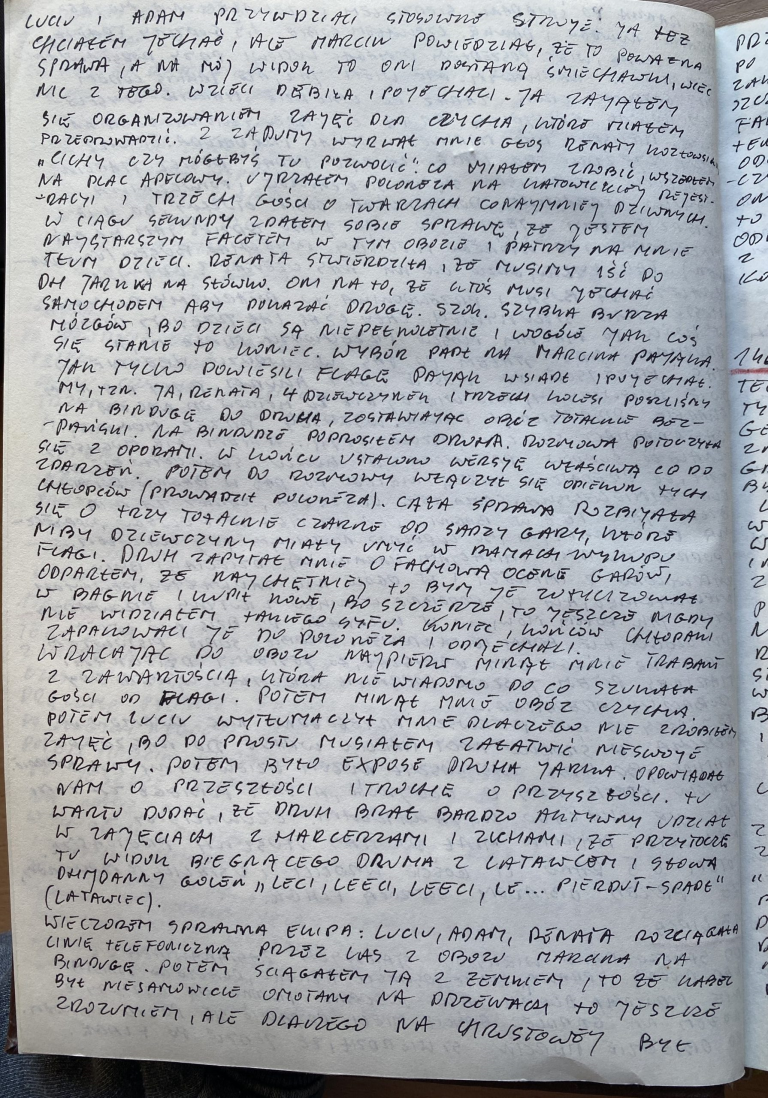 LUCIU I ADAM PRZYWDZIALI STOSOWNE STROJE. JA TEŻ
CHCIAŁEM JECHAĆ, ALE MARCIN POWIEDZIAŁ, ŻE TO POWAŻNA
SPRAWA, A NA MÓJ WIDOK TO ONI DOSTANĄ ŚMIECHAWKI, WIĘC
NIC Z TEGO. WZIELI DEBILA I POJECHALI. JA ZAJĄŁEM
SIĘ ORGANIZOWANIEM ZAJĘĆ DLA CZYCHA, KTÓRE MIAŁEM
PRZEPROWADZIĆ. Z ZADUMY WYRWAŁ MNIE GŁOS RENATY KOZŁOWSKIEJ
„CICHY CZY MÓGŁBYŚ TU POZWOLIĆ". CO MIAŁEM ZROBIĆ, WSZEDŁEM
NA PLAC APELOWY. UJRZAŁEM POLONEZA NA KATOWICKIEJ REJEST-
-RACJI I TRZECH GOŚCI O TWARZACH CONAJMNIEJ DZIWNYCH.
W CIĄGU SEKUNDY ZDAŁEM SOBIE SPRAWĘ, ŻE JESTEM
NAJSTARSZYM FACETEM W TYM OBOZIE I PATRZY NA MNIE
TŁUM DZIECI. RENATA STWIERDZIŁA, ŻE MUSIMY IŚĆ DO
DH JARKA NA SŁÓWKO. ONI NA TO, ŻE KTOŚ MUSI JECHAĆ
SAMOCHODEM ABY POKAZAĆ DROGĘ. SZOK. SZYBKA BURZA
MÓZGÓW, BO DZIECI SĄ NIEPEŁNOLETNIE I WOGÓLE JAK COŚ
SIĘ STANIE TO KONIEC. WYBÓR PADŁ NA MARCINA PAJĄKA.
JAK TYLKO POWIESILI FLAGĘ PAJĄK WSIADŁ I POJECHAŁ.
MY, TZN. JA, RENATA, 4 DZIEWCZYNKI I TRZECH KOLESI POSZLIŚMY
NA BINDUGĘ DO DRUHA, ZOSTAWIAJĄC OBÓZ TOTALNIE BEZ-
-PAŃSKI. NA BINDUDZE POPROSIŁEM DRUHA. ROZMOWA POTOCZYŁA
SIĘ Z OPORAMI. W KOŃCU USTALONO WERSJĘ WŁAŚCIWĄ CO DO
ZDARZEŃ. POTEM DO ROZMOWY WŁĄCZYŁ SIĘ OPIEKUN TYCH
CHŁOPCÓW (PROWADZIŁ POLONEZA). CAŁA SPRAWA ROZBIJAŁA
SIĘ O TRZY TOTALNIE CZARNE OD SADZY GARY, KTÓRE
NIBY DZIEWCZYNY MIAŁY UMYĆ W RAMACH WYKUPU
FLAGI. DRUH ZAPYTAŁ MNIE O FACHOWĄ OCENĘ GARÓW,
ODPARŁEM, ŻE NAJCHĘTNIEJ TO BYM JE ZUTYLIZOWAŁ
W BAGNIE I KUPIŁ NOWE, BO SZCZERZE, TO JESZCZE NIGDY
NIE WIDZIAŁEM TAKIEGO SYFU. KONIEC, KOŃCÓW CHŁOPAKI
ZAPAKOWALI JE DO POLONEZA I ODJECHALI.
WRACAJĄC DO OBOZU NAJPIERW MINĄŁ MNIE TRABANT
Z ZAWARTOŚCIĄ, KTÓRA NIE WIADOMO PO CO SZUKAŁA
GOŚCI OD FLAGI. POTEM MINĄŁ MNIE OBÓZ CZYCHA.
POTEM LUCIU WYTŁUMACZYŁ MNIE DLACZEGO NIE ZROBIŁEM
ZAJĘĆ, BO PO PROSTU MUSIAŁEM ZAŁATWIĆ NIESWOJE
SPRAWY. POTEM BYŁO EXPOSE DRUHA JARKA. OPOWIADAŁ
NAM O PRZESZŁOŚCI I TROCHĘ O PRZYSZŁOŚCI. TU
WARTO DODAĆ, ŻE DRUH BRAŁ BARDZO AKTYWNY UDZIAŁ
W ZAJĘCIACH Z HARCERZAMI I ZUCHAMI, ŻE PRZYTOCZĘ
TU WIDOK BIEGNĄCEGO DRUHA Z LATAWCEM I SŁOWA
DH JOANNY GOLEŃ „LECI, LEECI, LEECI, LE... PIERDUT-SPADŁ"
(LATAWIEC).
WIECZOREM SPRAWNA EKIPA: LUCIU, ADAM, RENATA ROZCIĄGAŁA
LINIĘ TELEFONICZNĄ PRZEZ LAS Z OBOZU MARCINA NA
BINDUGĘ. POTEM ŚCIĄGAŁEM JĄ Z ZEMKIEM, TO ŻE KABEL
BYŁ NIESAMOWICIE OMOTANY NA DRZEWACH TO JESZCZE
ZROZUMIEM, ALE DLACZEGO NA CHRUSTOWEJ BYŁ